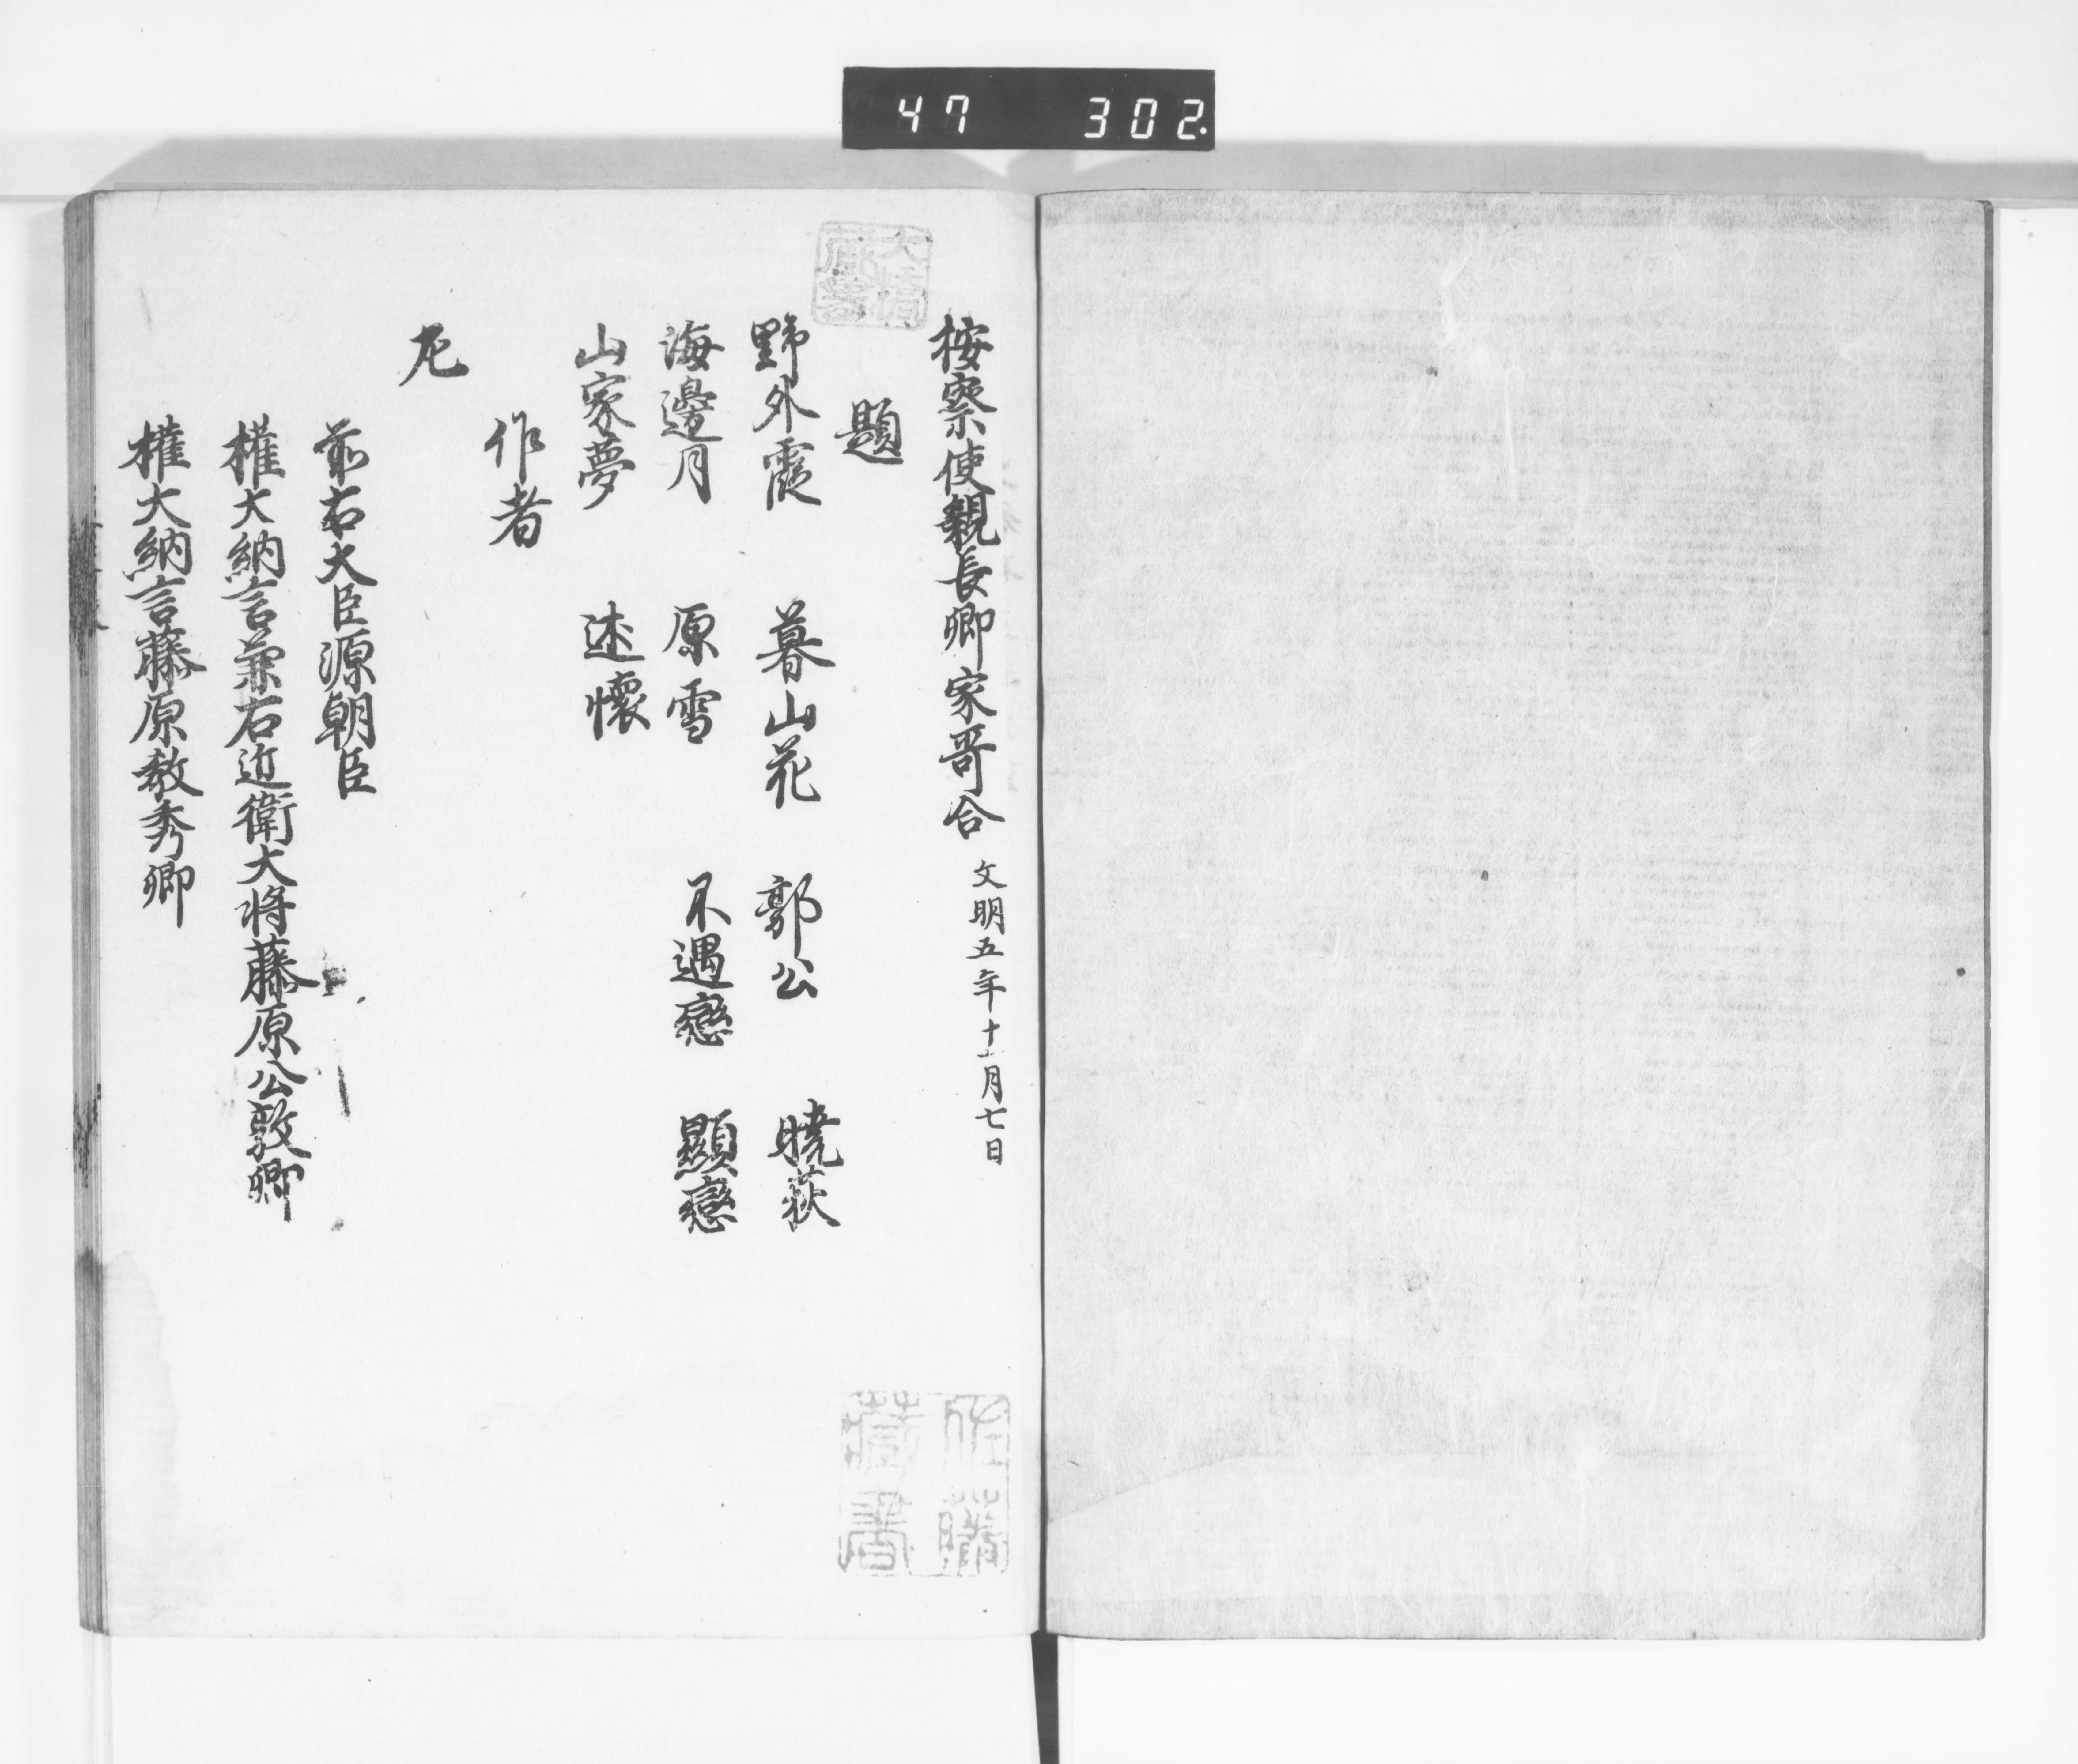 47 302.
按察使親長卿家哥合 文明五年十一月七日
題
野外霞 暮山花 郭公 暁荻
海邊月 原雪 不遇戀 顯戀
山家夢 述懐
作者
左
前右大臣源朝臣
權大納言兼右近衛大将藤原公敦卿
權大納言藤原教秀卿
佐藤
蔵書